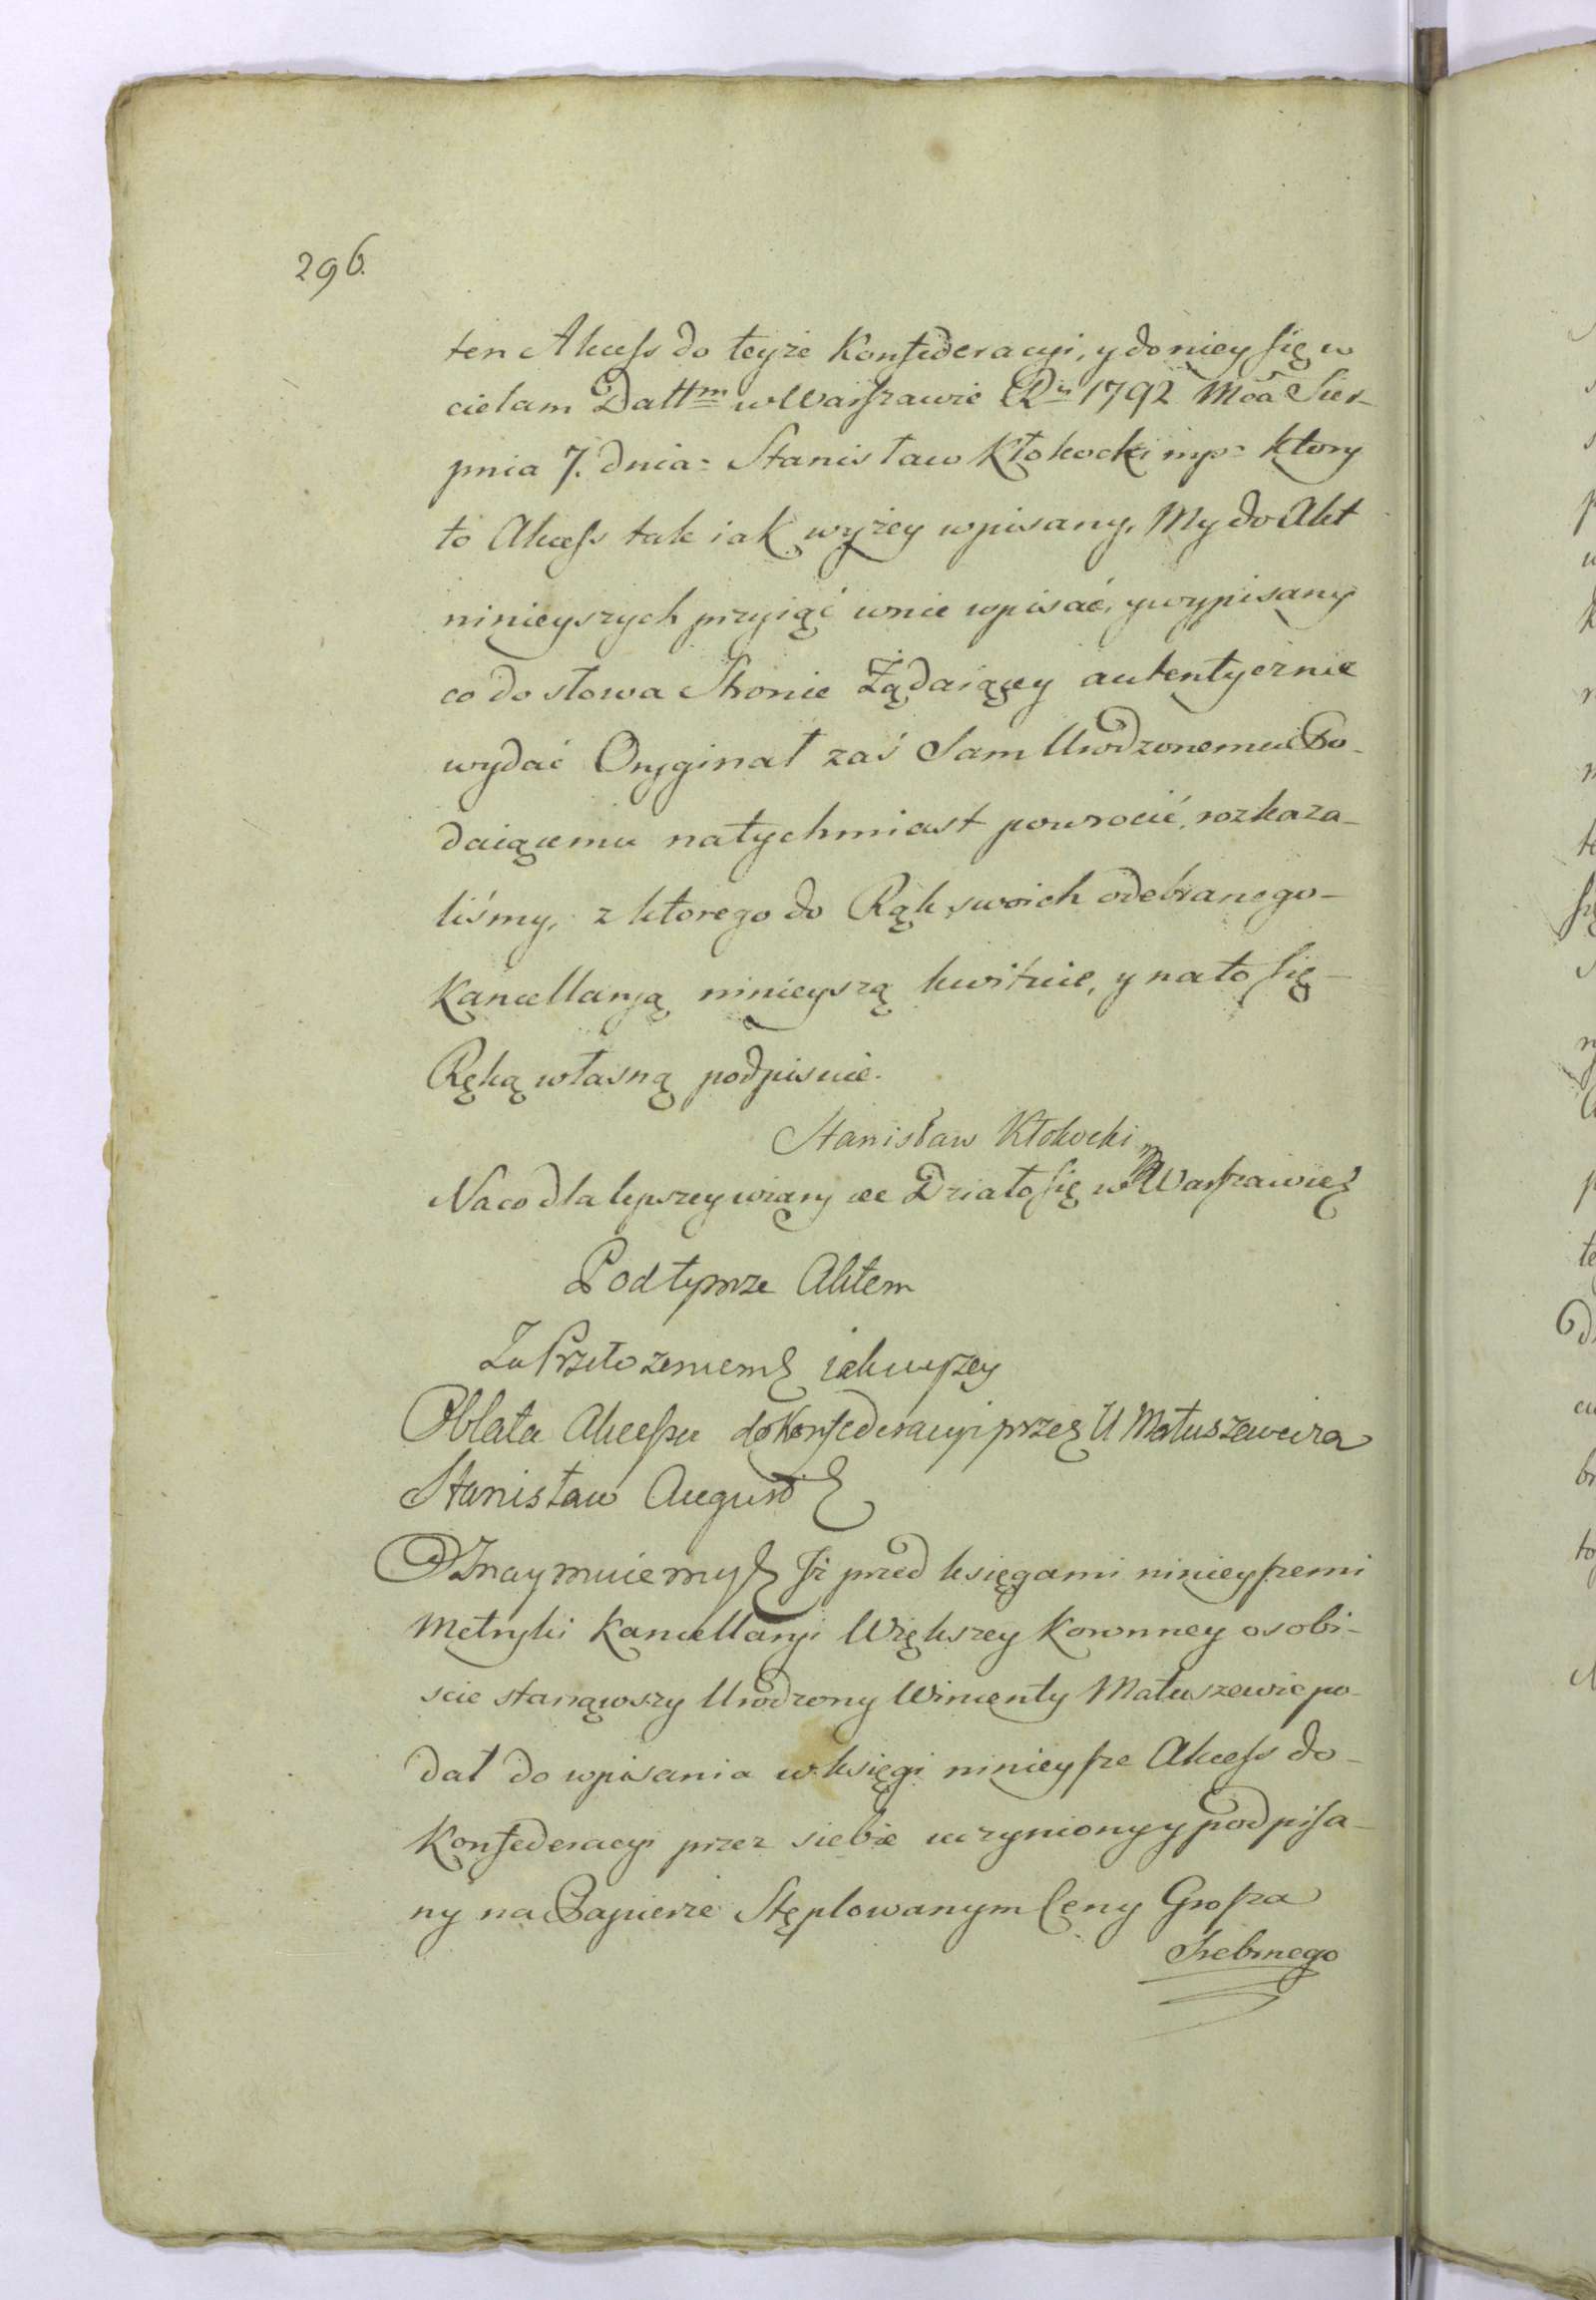 296.
ten Akcess do teyże Konfederacyi, y do niey się w
cielam Datt<sup>m</sup> w Warszawie R<sup>u</sup> 1792 Mca Sier-
pnia 7. dnia = Stanisław Kłokocki mp = ktory
to Akcess tak iak wyżey wpisany, My do Akt
ninieyszych przyiąć w nie wpisać, y wypisany
co do słowa Stronie Żądaiącey autentycznie
wydać Oryginał zaś Sam Urodzonemu Po-
daiącemu natychmiast powrocić, rozkaza-
liśmy, z ktorego do Rąk swoich odebranego-
Kancellaryą ninieyszą kwituie, y na to się-
Ręką własną podpisuie.
Stanisław Kłokocki mp
Na co dla lepszey wiary &c Działo się w Warszawie
Pod tymże Aktem
Za Przełożeniem iak wyżey
Oblata Akcessu do Konfederacyi przez U Matuszewicza
Stanisław August
Oznaymuiemy Iż przed księgami ninieyszemi
Metryki Kancellaryi Większey Koronney osobi-
scie stanąwszy Urodzony Wincenty Matuszewic po-
dał do wpisania w księgi ninieysze Akcess do-
Konfederacyi przez siebie uczyniony y podpisa-
ny na Papierze Stęplowanym Ceny Grosza
Srebrnego